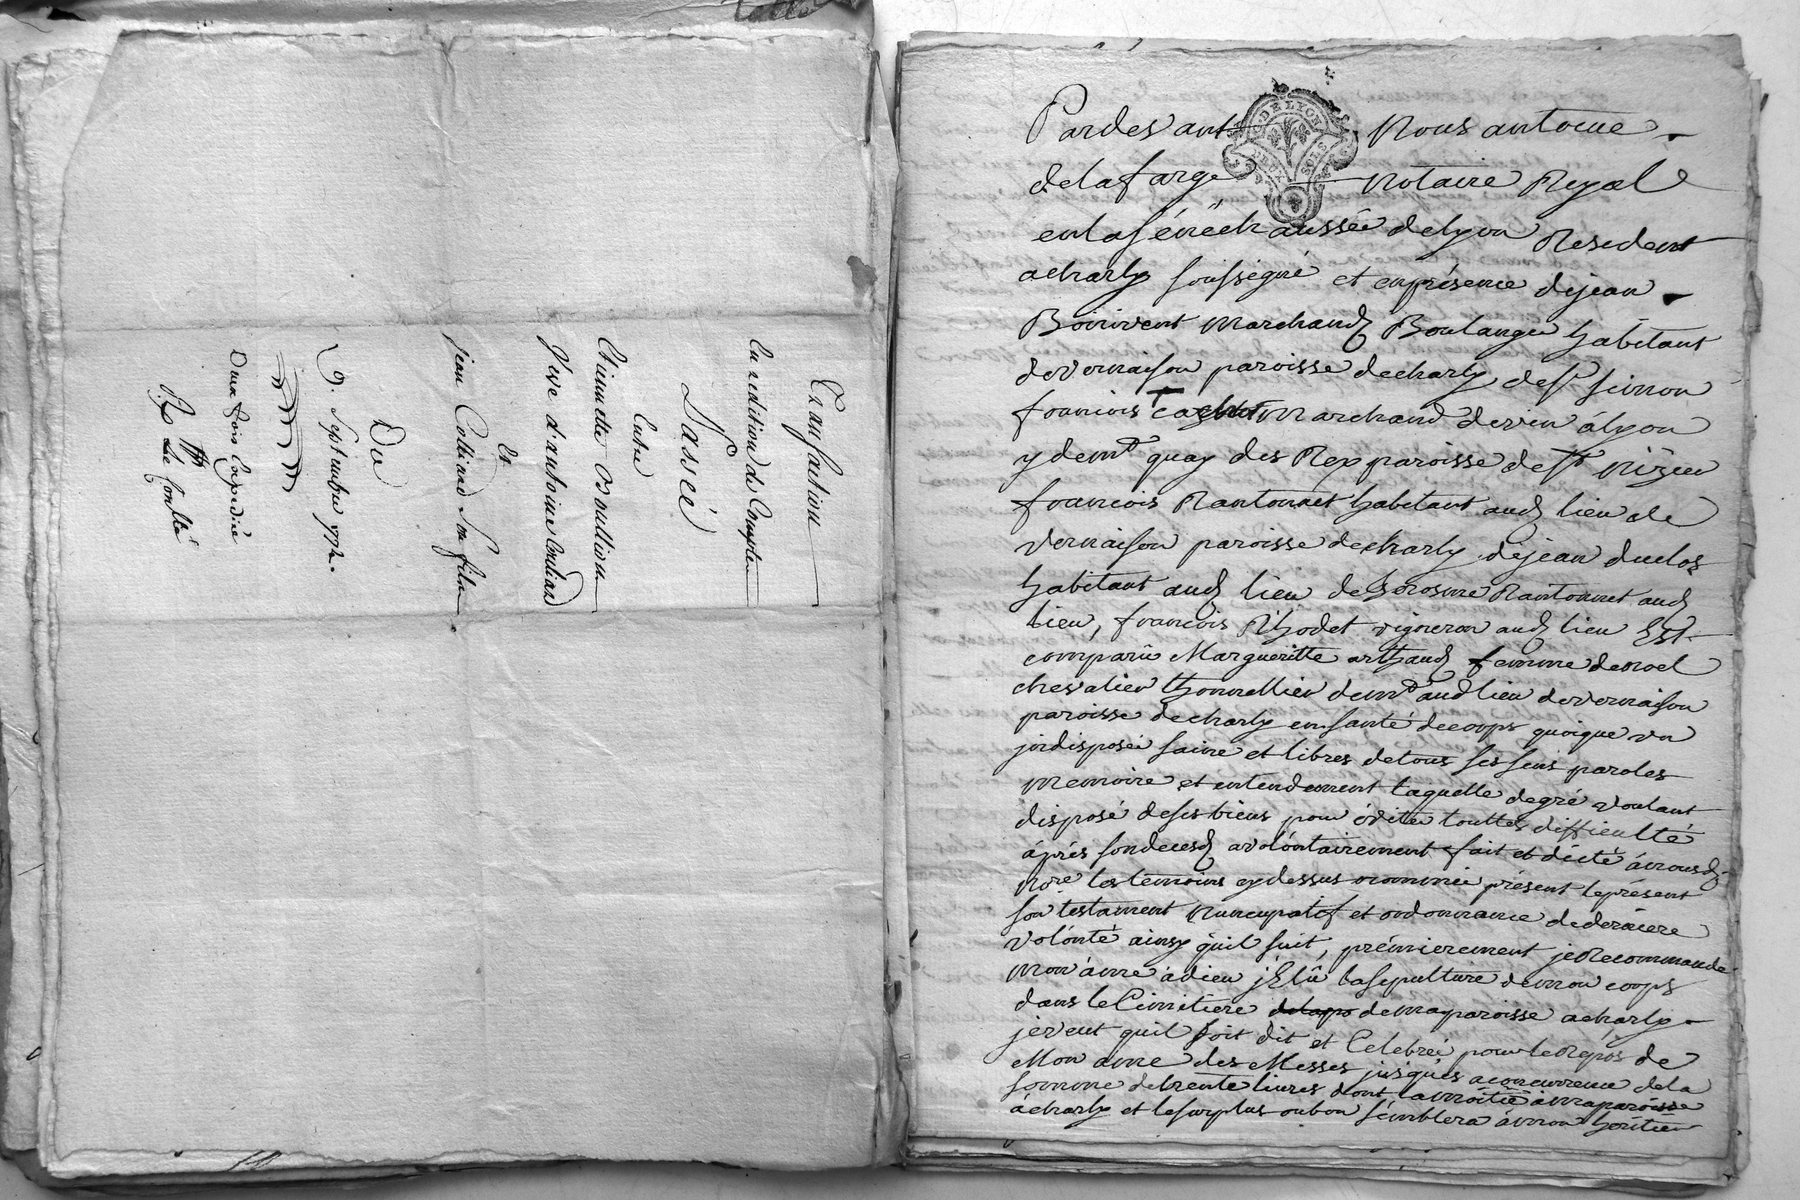 Transaction
En reddition de Compte
Passeé
Entre
Etiennette Boullion
Veve d'antoine Coulliard
Et
jean Son fils
Du
9. Septembre 1772.
Deux fois Expediée
Pardevant Nous antoine
delafarge Notaire Royal
DE LYON
DEUX SOLS
enla sénéchaussée delyon Resident
acharly soussigné et enprésence dejean
Boirivent Marchand Boulanger habitant
devernaison paroisse decharly, de sr simon
francois Marchand devin ályon
y demt quay des paroisse de st Nizier
francois Rantonnet habitant aud lieu de
vernaison paroisse decharly, dejean duclos
habitant aud lieu de Rantonnet aud
lieu, francois Rhodet vigneron aud lieu Est
comparue Margueritte arthaud femme denoel
chevalier thonnellier demt aud lieu devernaison
paroisse decharly en santé decorps quoique un
jndisposée saine et libres detous ses sens paroles
memoire et entendement laquelle degré voulant
disposé desesbiens pour éviter touttes difficulté
áprés sondecesd avolóntairement fait et dicté ánousd
nore les temoins cydessus nommée présent leprésent
son testament Nuncupatif et ordonnance dederniere
volónté ainsy quil suit, prémierement jeRecommande
mon ame adieu j'Elû lasepulture demon corps
dans le Cimitiere demaparoisse acharly
jeveut quil soit dit et Celebrée pour leRepos de
Mon ame des Messes jusques aconcurrence dela
somme detrente livres dont lamoitié ámaparoisse
ácharly et lesurplus oubon semblera ámon héritier